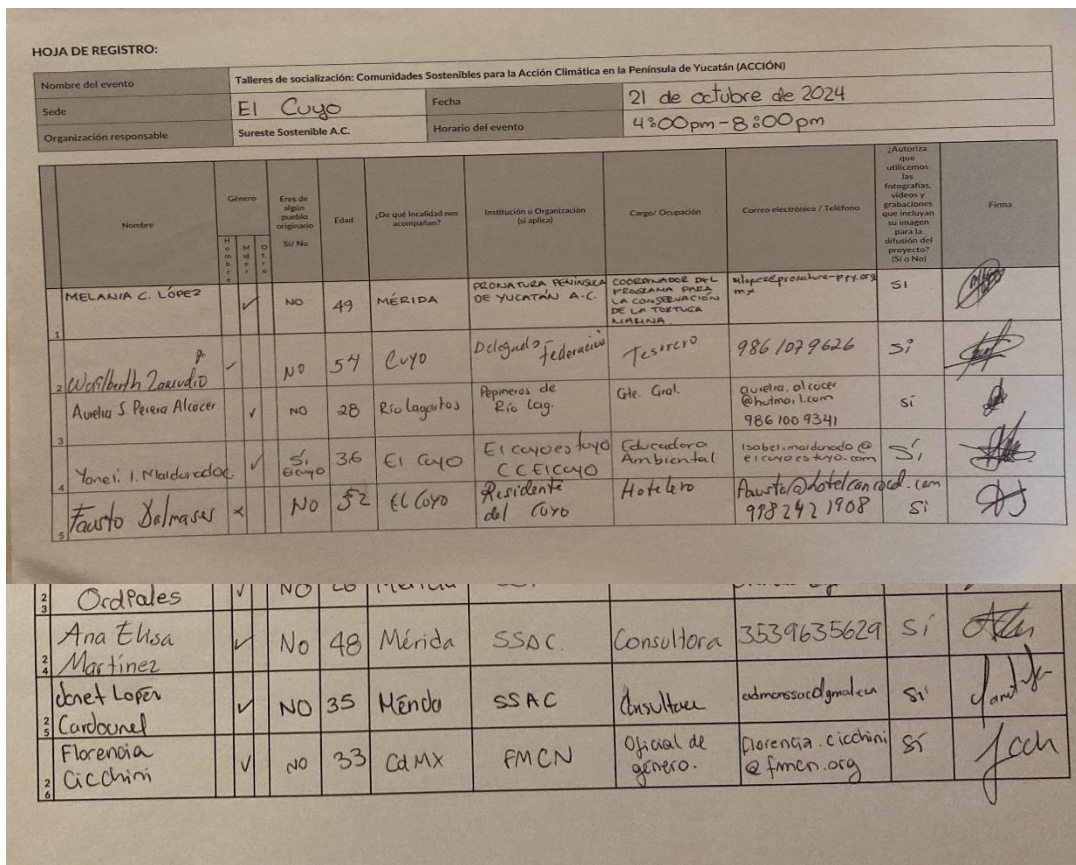 HOJA DE REGISTRO:
Nombre del evento Talleres de socialización: Comunidades Sostenibles para la Acción Climática en la Península de Yucatán (ACCIÓN)
Sede El Cuyo Fecha 21 de octubre de 2024
Organización responsable Sureste Sostenible A.C. Horario del evento 4:00pm-8:00pm
Nombre Género Hombre Mujer Otro Eres de algún pueblo originario Si/ No Edad ¿De qué localidad nos acompañan? Institución u Organización (si aplica) Cargo/ Ocupación Correo electrónico / Teléfono ¿Autoriza que utilicemos las fotografías, videos y grabaciones que incluyan su imagen para la difusión del proyecto? (Sí o No) Firma
1 MELANIA C. LÓPEZ ✓ NO 49 MÉRIDA PRONATURA PENÍNSULA DE YUCATÁN A.C. COORDINADOR DEL PROGRAMA PARA LA CONSERVACIÓN DE LA TORTUGA MARINA. SI
2 NO 54 Cuyo Delegado Federación Tesorero 986 1079626 Sí
3 Aurelia S. Perera Alcocer ✓ NO 28 Río Lagartos Pepineros de Río Lag. Gte. Gral. @hotmail.com 986 100 9341 Sí
4 Yoneli I. Maldonado C. ✓ Sí, El cuyo 36 El Cuyo El cuyo es tuyo CCElCuyo Educadora Ambiental Isabel.maldonado@elcuyoestuyo.com Sí
5 Fausto Dalmases x No 52 El Cuyo Residente del Cuyo Hotelero 998 242 1908 Si
23 OrdPales ✓ NO 26 Mérida
24 Ana Elisa Martínez ✓ No 48 Mérida SSAC. Consultora 3539635629 Sí
25 Janet López Cardounel ✓ NO 35 Mérida SSAC Consultora Sí
26 Florencia Cicchini ✓ NO 33 CdMX FMCN Oficial de género. florencia.cicchini@fmcn.org Sí